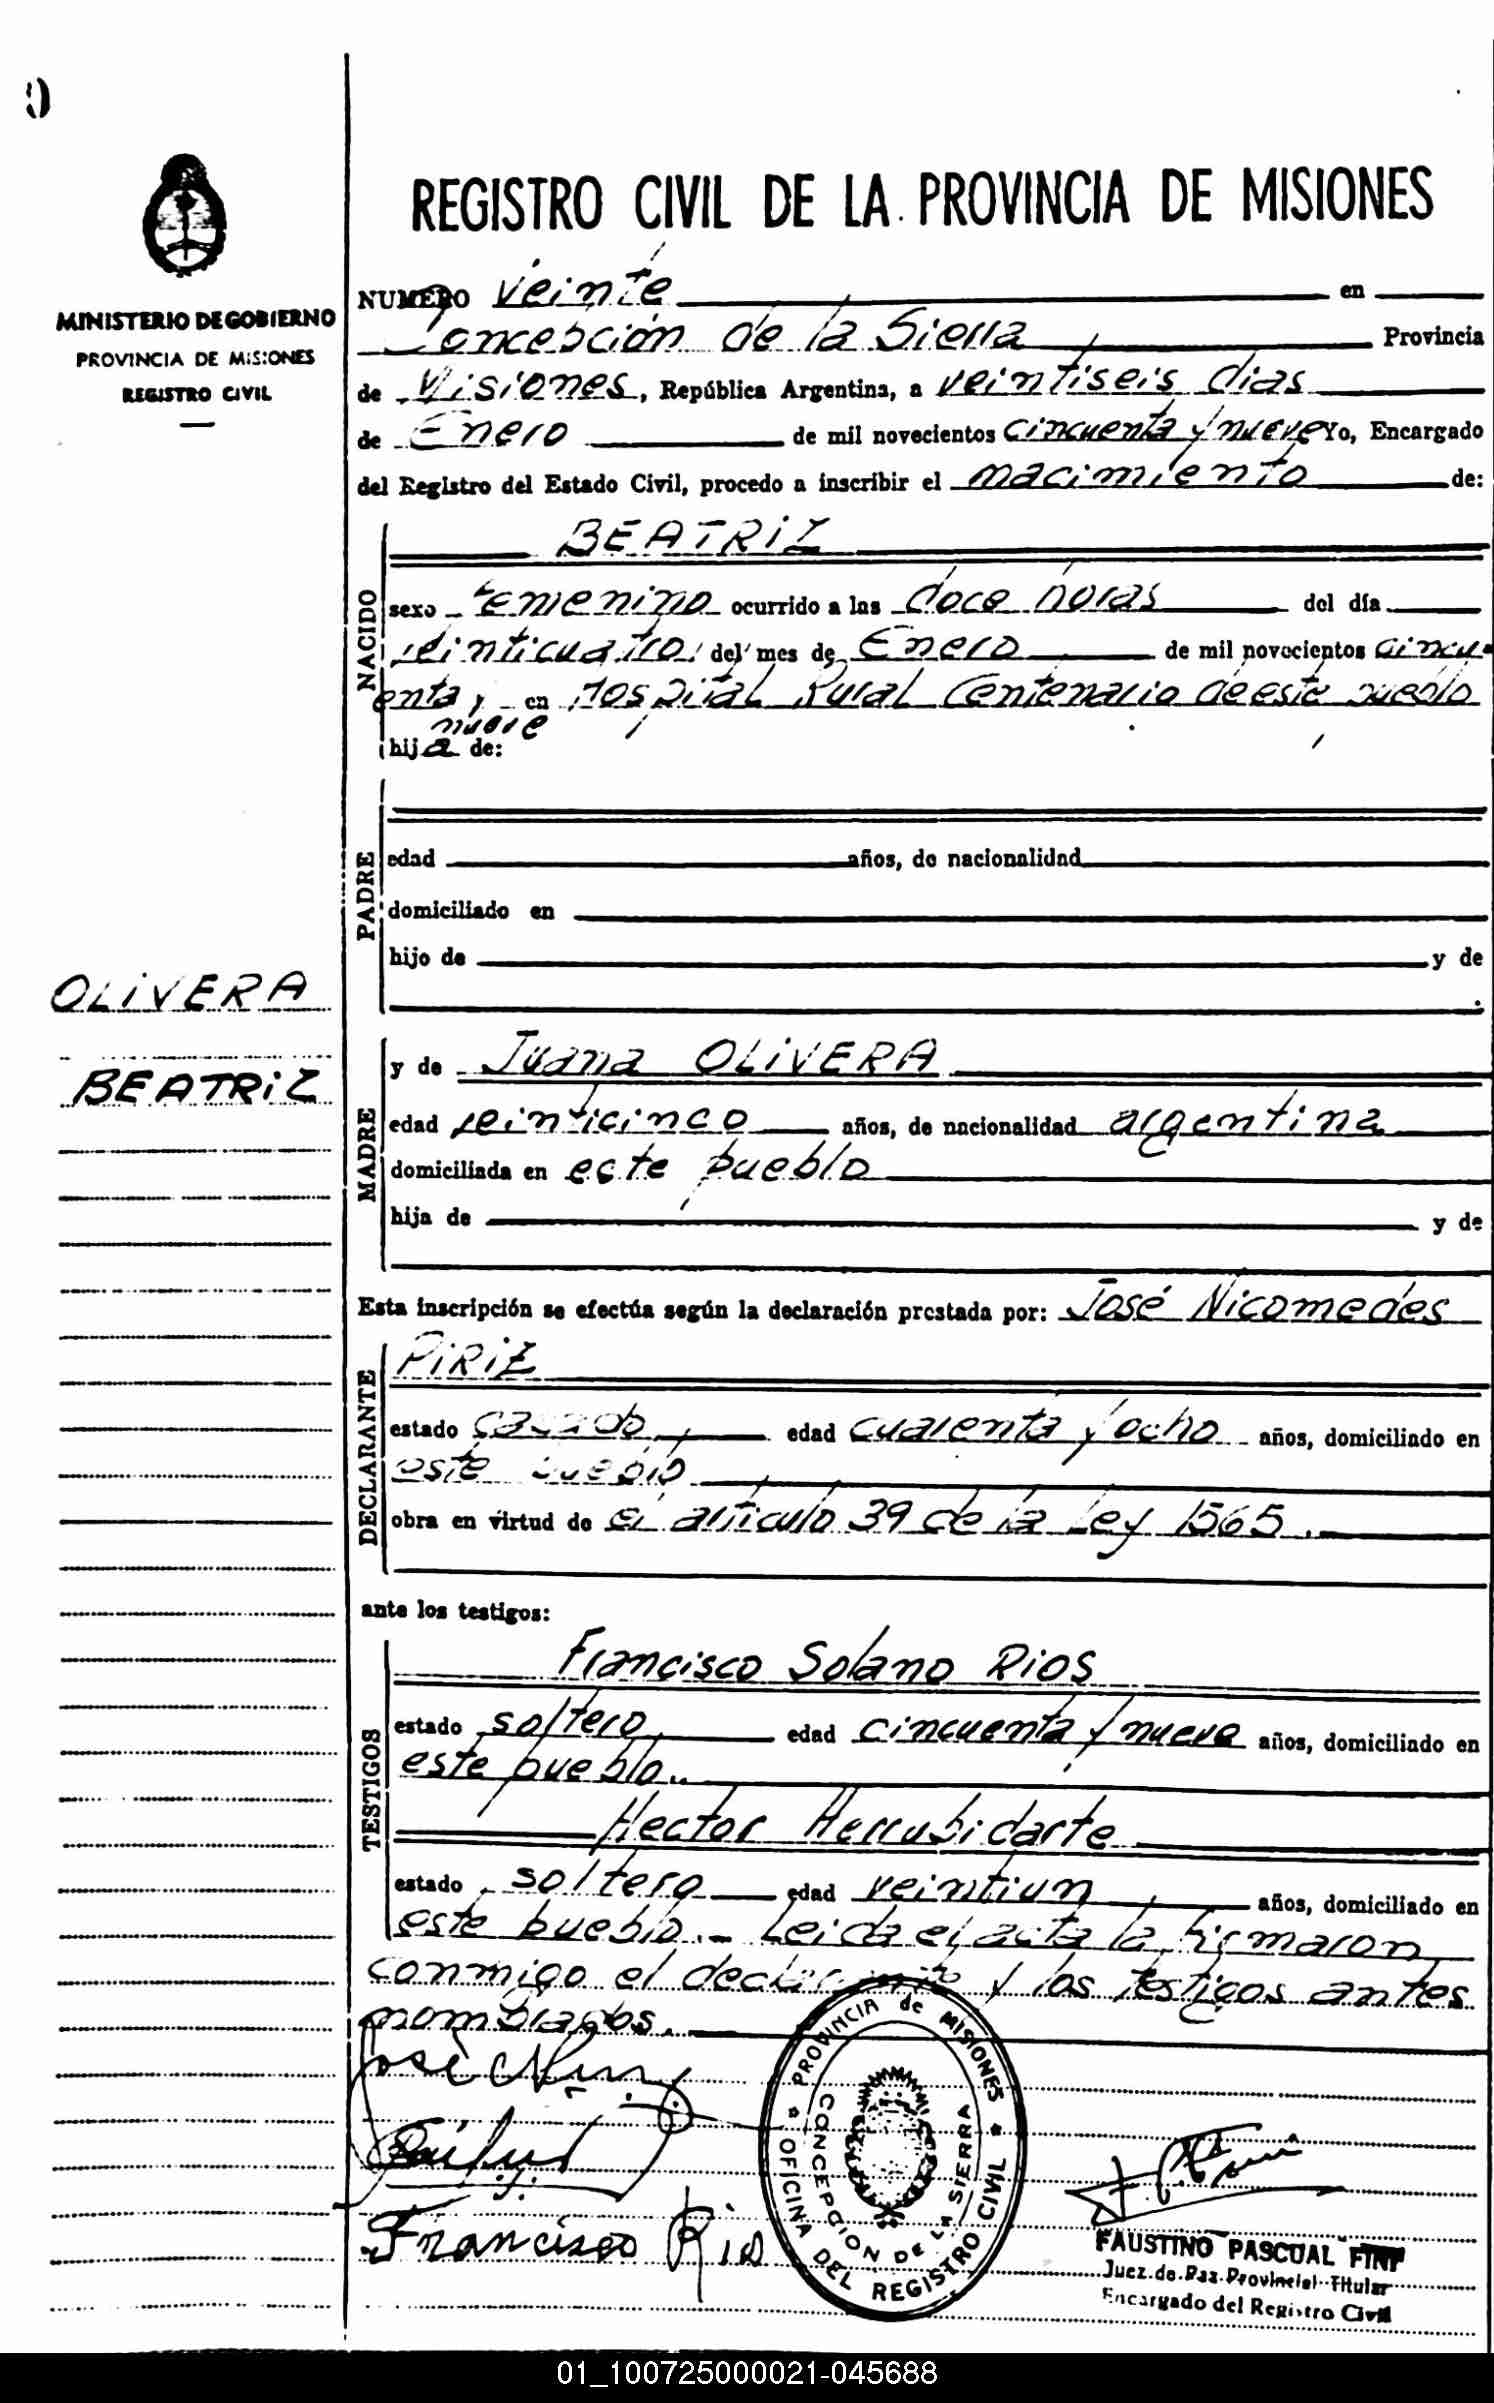 REGISTRO CIVIL DE LA PROVINCIA DE MISIONES
MINISTERIO DE GOBIERNO
PROVINCIA DE MISIONES
REGISTRO CIVIL
NUMERO Veinte en
Concepción de la Sierra Provincia
de Misiones, República Argentina, a veintiseis dias
de Enero de mil novecientos cincuenta y nueve Yo, Encargado
del Registro del Estado Civil, procedo a inscribir el nacimiento de:
NACIDO
BEATRIZ
sexo femenino ocurrido a las doce horas del día
veinticuatro del mes de Enero de mil novecientos cincu-
enta y en Hospital Rural Centenario de este pueblo
nueve
hija de:
PADRE
edad años, de nacionalidad
domiciliado en
hijo de y de
OLIVERA
BEATRIZ
MADRE
y de Juana OLIVERA
edad veinticinco años, de nacionalidad argentina
domiciliada en este pueblo
hija de y de
Esta inscripción se efectúa según la declaración prestada por: José Nicomedes
DECLARANTE
PIRIZ
estado casado edad cuarenta y ocho años, domiciliado en
este pueblo
obra en virtud de el artículo 39 de la Ley 1565.
ante los testigos:
TESTIGOS
Francisco Solano Rios
estado soltero edad cincuenta y nueve años, domiciliado en
este pueblo..
Hector Herrubidarte
estado soltero edad veintiun años, domiciliado en
este pueblo.- Leida el acta la firmaron
conmigo el declarante y los testigos antes
nombrados.
José
Francisco Rios
PROVINCIA de MISIONES
OFICINA DEL REGISTRO CIVIL
CONCEPCION DE LA SIERRA
FAUSTINO PASCUAL FINI
Juez de Paz Provincial Titular
Encargado del Registro Civil
01_100725000021-045688